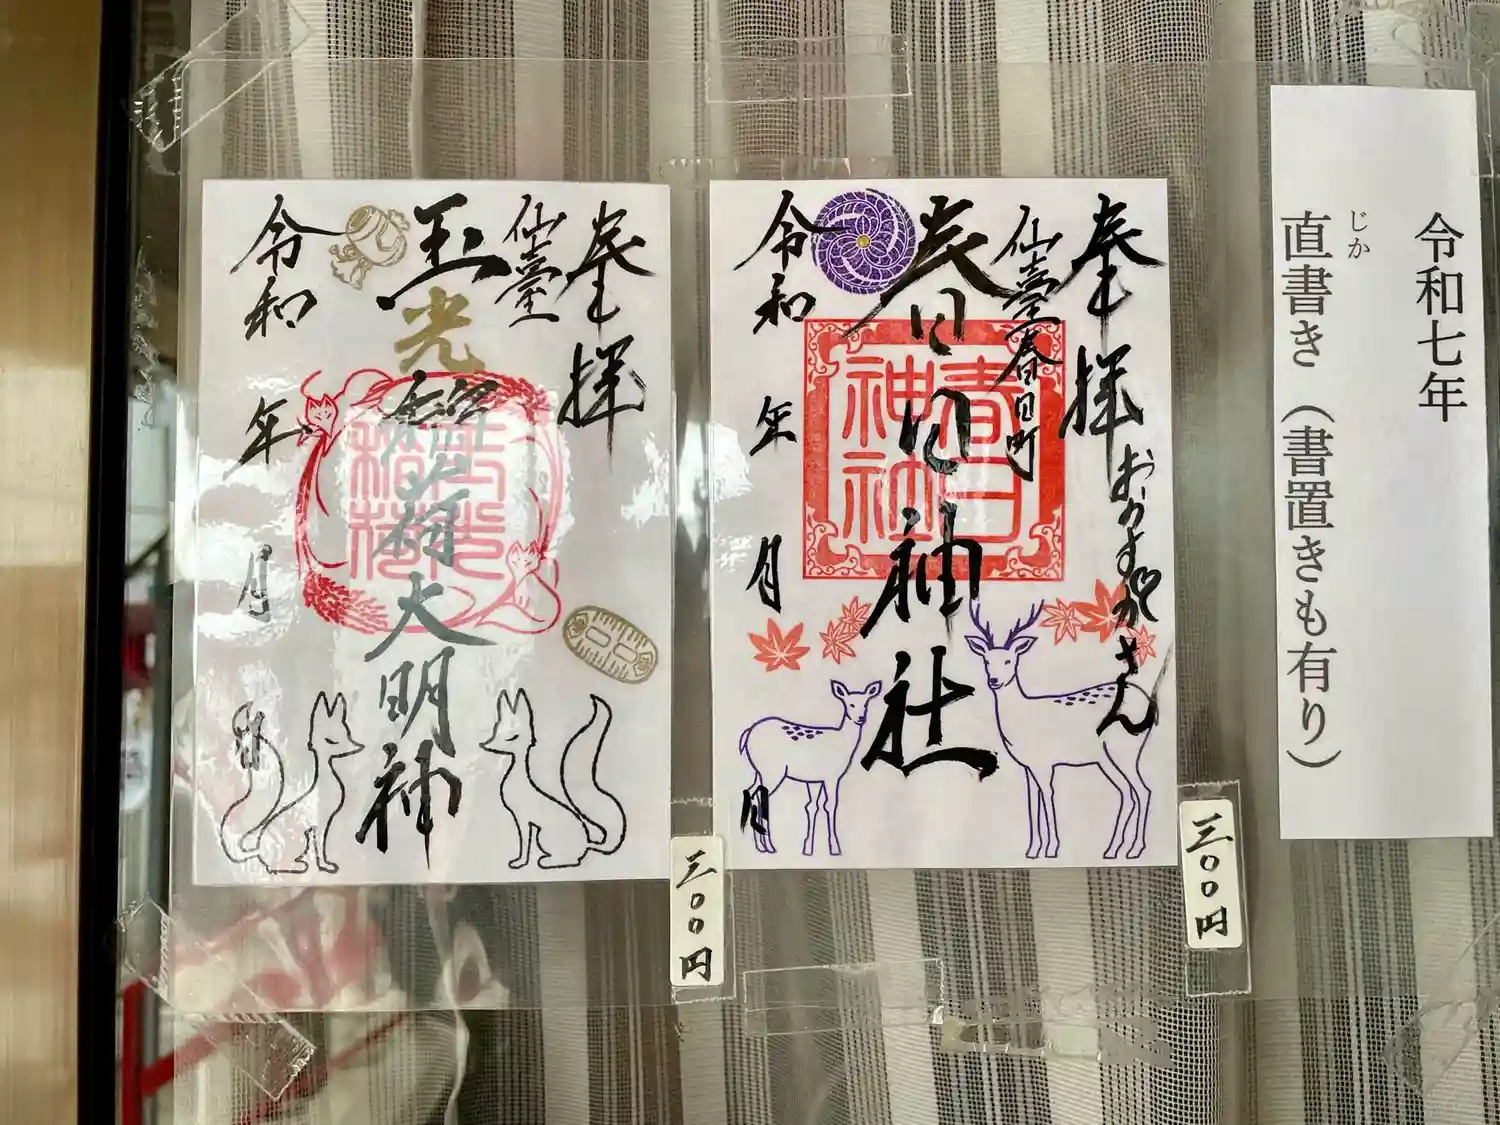 令和七年
じか
直書き（書置きも有り）
奉拝
仙臺春日町
春日神社
春日
神社
おかすがさん
令和 年 月 日
三〇〇円
奉拝
仙臺
玉光稲荷大明神
玉光
稲荷
令和 年 月 日
三〇〇円